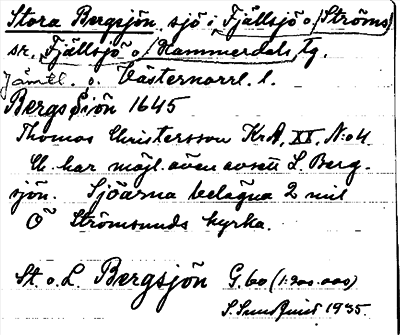 Stora Bergsjön, sjö i Fjällsjö o. (Ströms)
sr, Fjällsjö o. Hammerdals tg.
Jämtl. o. Västernorrl. l.
Bergs Siön 1645
Thomas Christersson KrA, XX, No 4.
U. har möjl. även avsett L. Berg-
sjön. Sjöarna belägna 2 mil
Ö Strömsunds kyrka.
St. o. L. Bergsjön G. 60 (1:200.000)
S. Sundquist 1935.